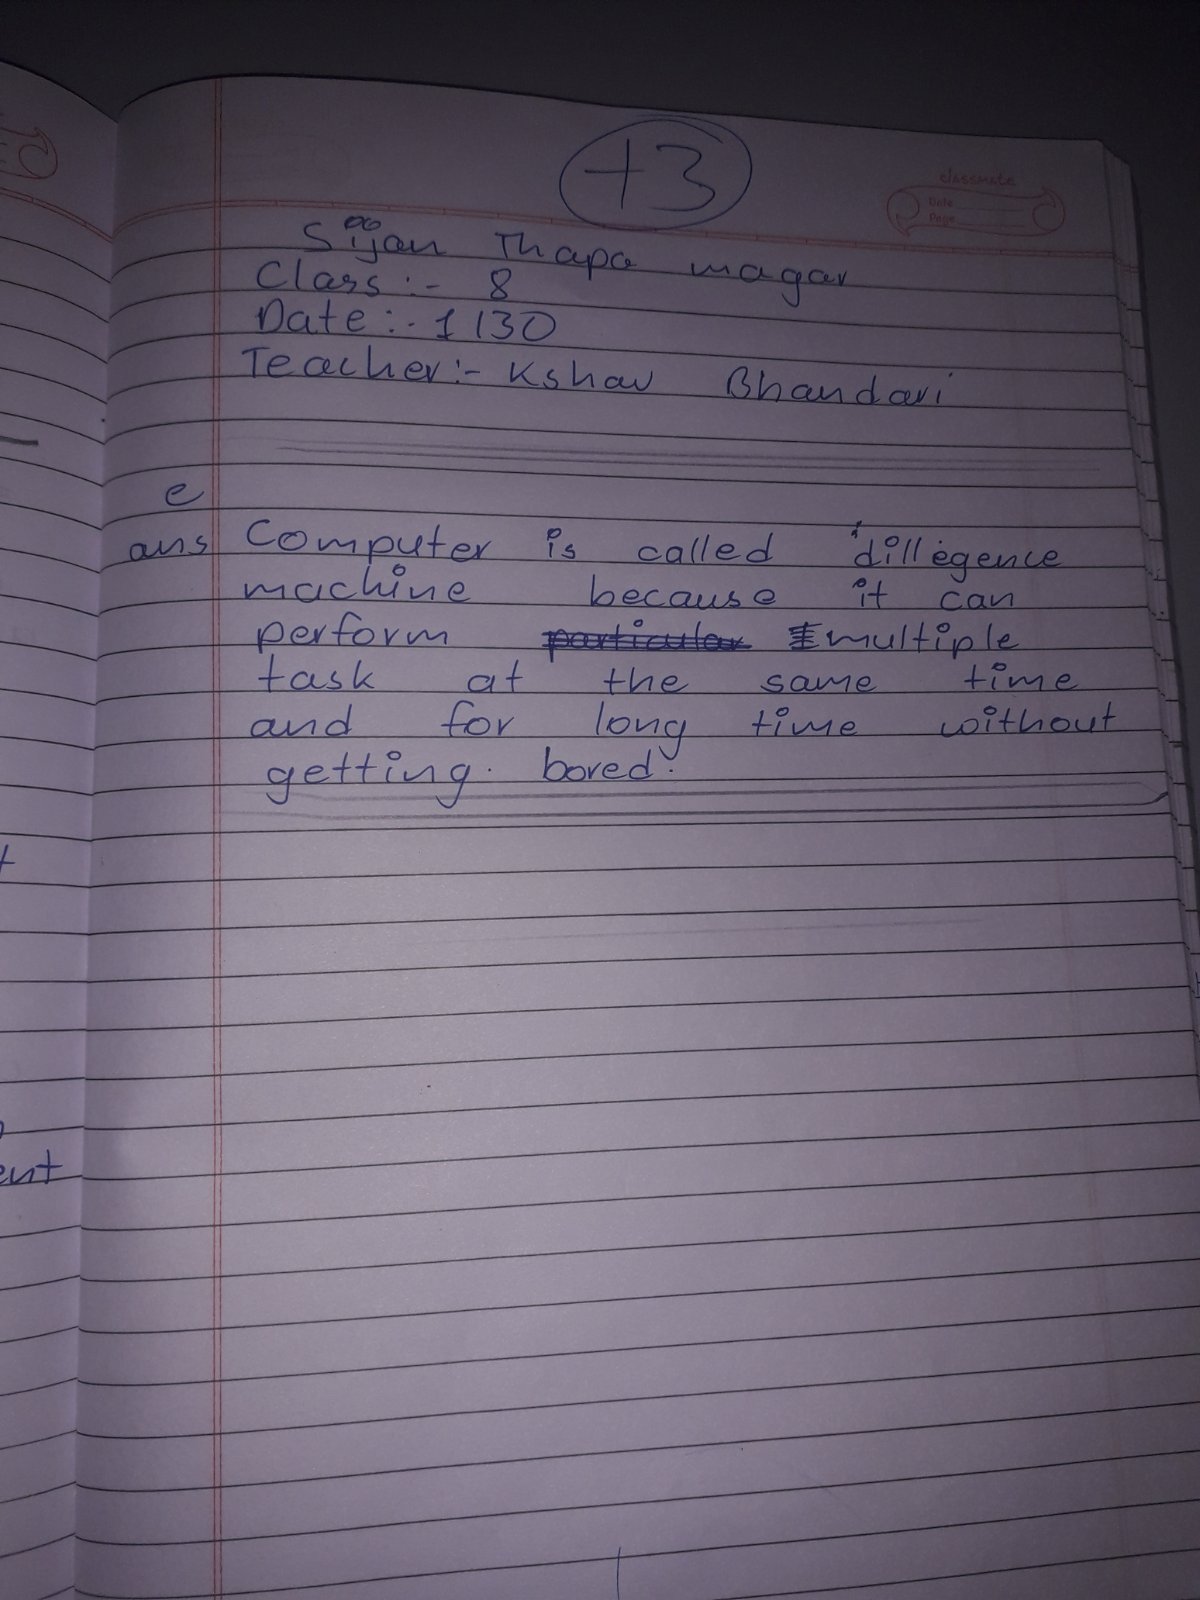 +3
classmate
Date
Page
Sijan Thapa magar
Class :- 8
Date :- 1130
Teacher :- Kshav Bhandari
e
ans Computer is called dillegence
machine because it can
perform particular multiple
task at the same time
and for long time without
getting. bored.
t
ent